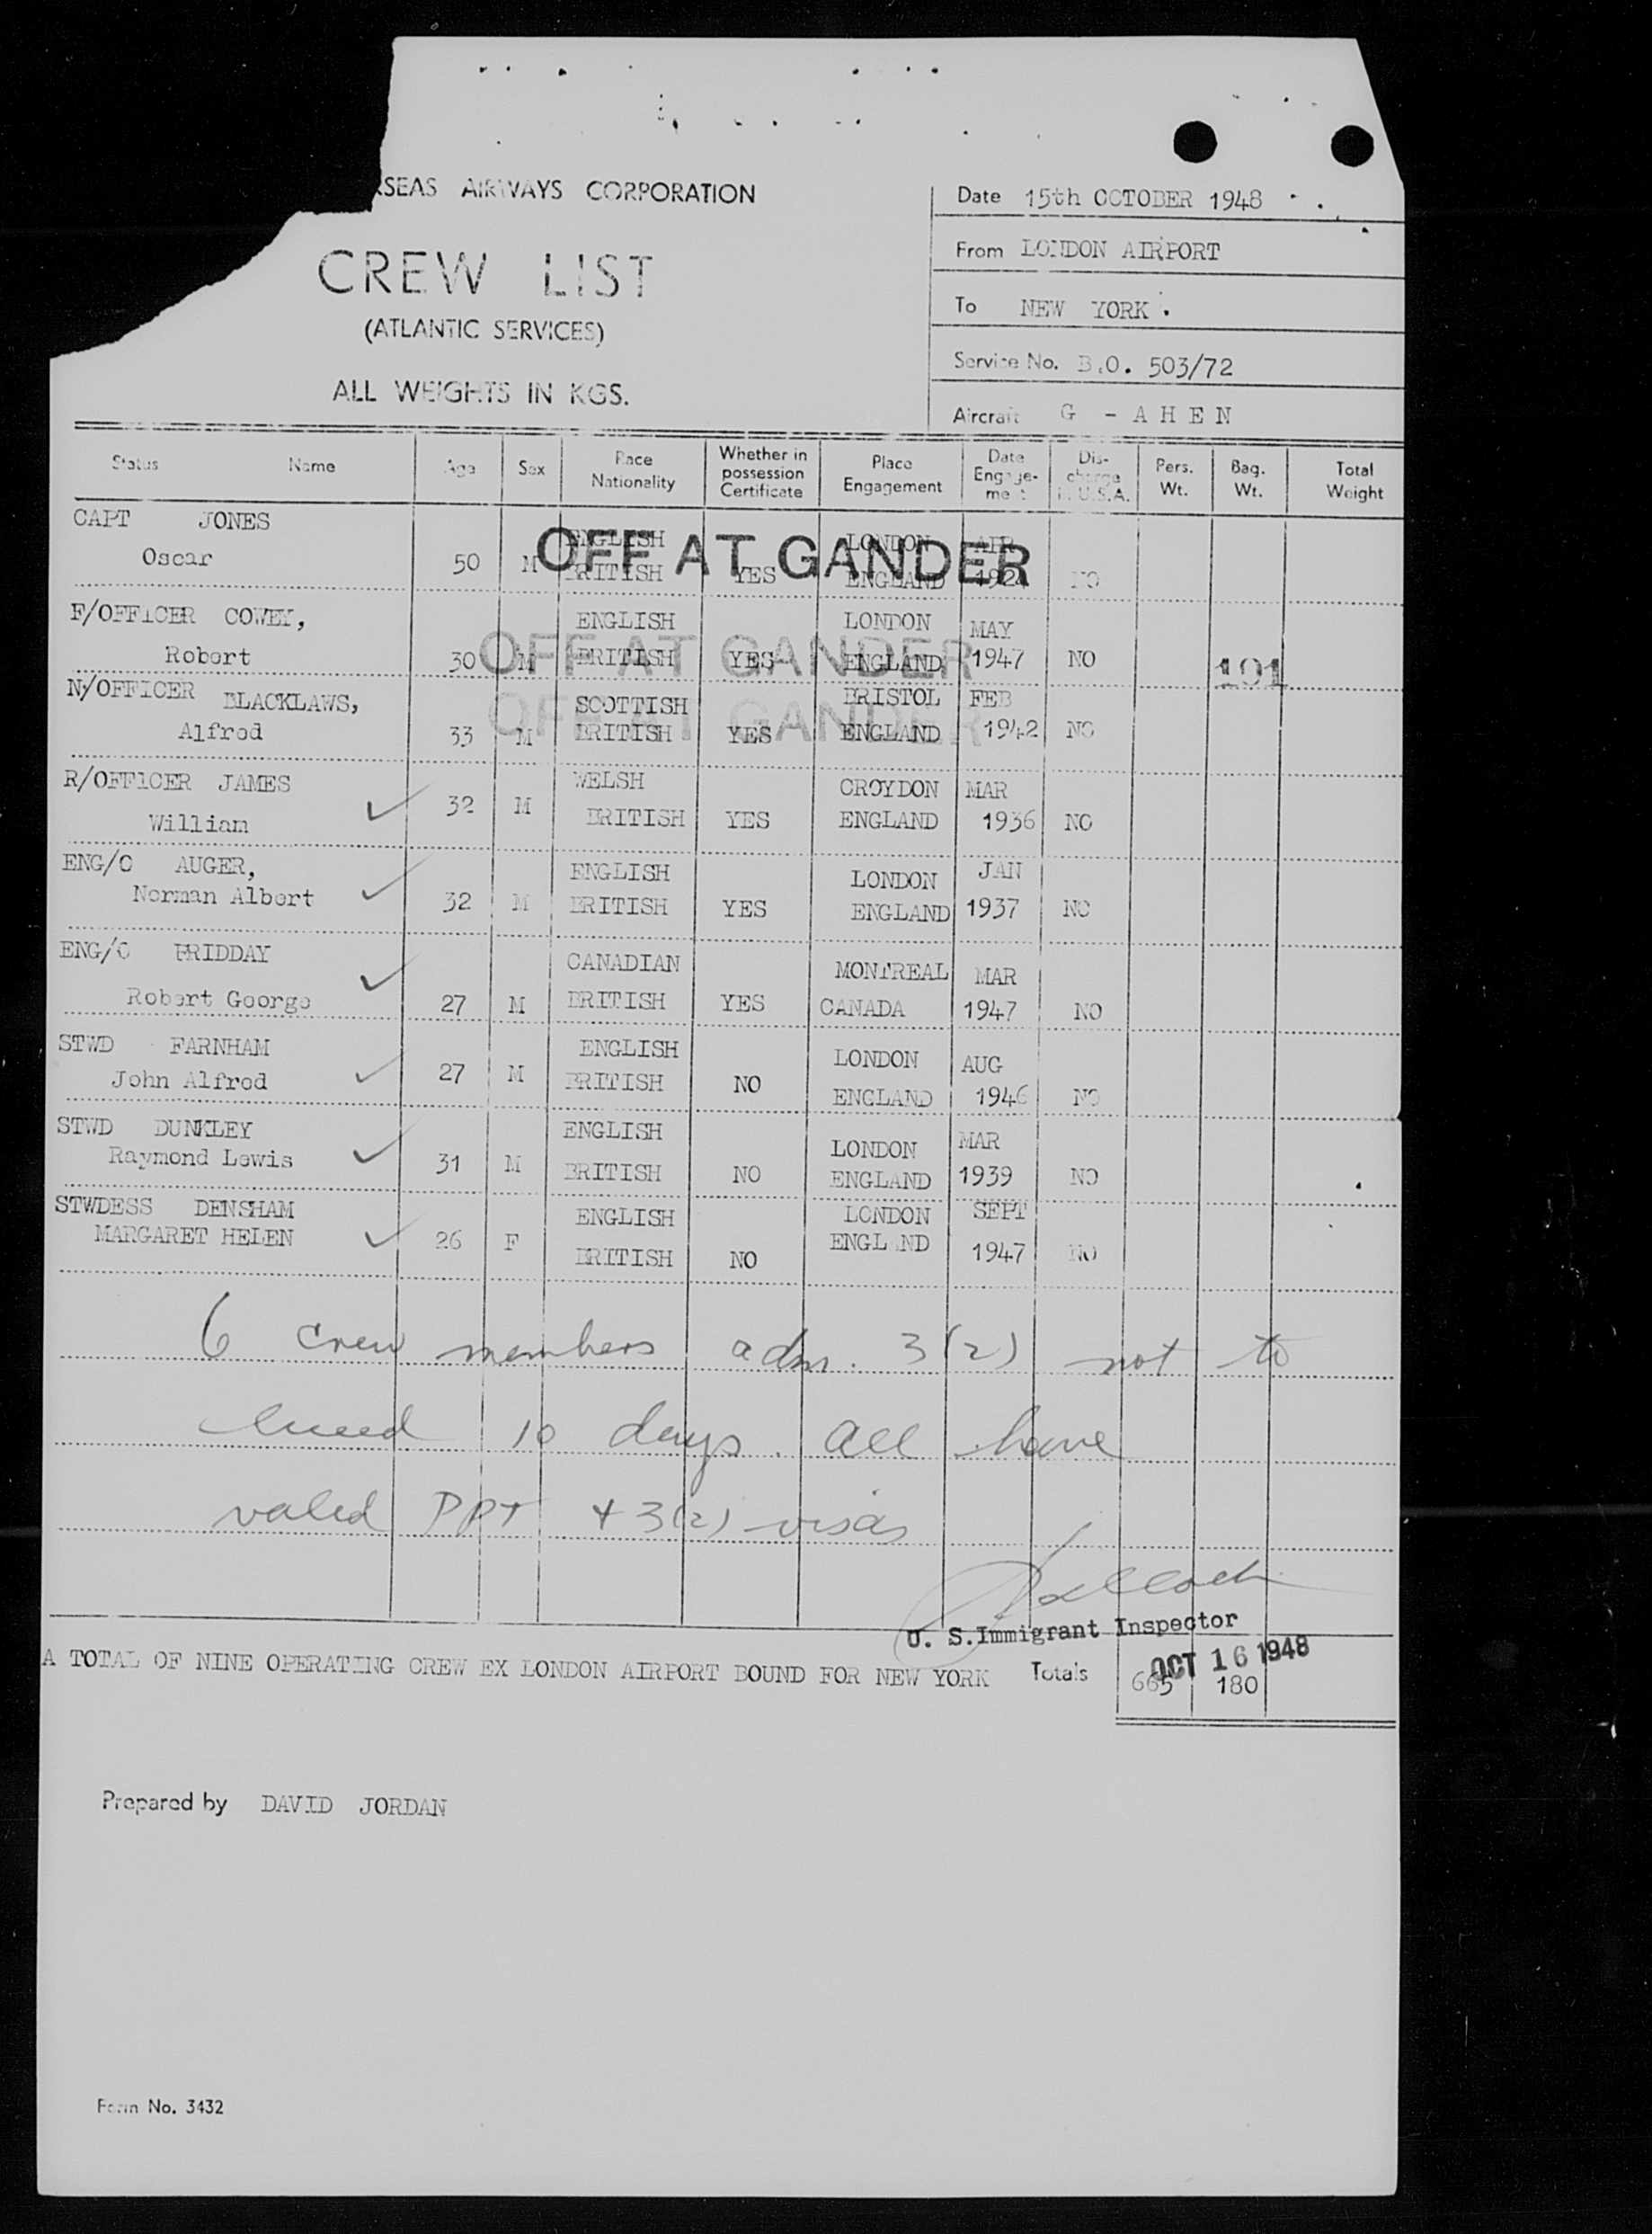 RSEAS AIRWAYS CORPORATION
CREW LIST
(ATLANTIC SERVICES)
ALL WEIGHTS IN KGS.
Date 15th OCTOBER 1948
From LONDON AIRPORT
To NEW YORK.
Service No. B.O. 503/72
Aircraft G - A H E N
Status Name Age Sex Race Nationality Whether in possession Certificate Place Engagement Date Engagement Discharge in U.S.A. Pers. Wt. Bag. Wt. Total Weight
CAPT JONES ENGLISH LONDON
Oscar 50 M BRITISH YES ENGLAND NO
OFF AT GANDER
F/OFFICER COWEY, ENGLISH LONDON MAY
Robert 30 M BRITISH YES ENGLAND 1947 NO 191
OFF AT GANDER
N/OFFICER BLACKLAWS, SCOTTISH BRISTOL FEB
Alfred 33 M BRITISH YES ENGLAND 1942 NO
OFF AT GANDER
R/OFFICER JAMES WELSH CROYDON MAR
William 32 M BRITISH YES ENGLAND 1936 NO
ENG/O AUGER, ENGLISH LONDON JAN
Norman Albert 32 M BRITISH YES ENGLAND 1937 NO
ENG/O PRIDDAY CANADIAN MONTREAL MAR
Robert George 27 M BRITISH YES CANADA 1947 NO
STWD FARNHAM ENGLISH LONDON AUG
John Alfred 27 M BRITISH NO ENGLAND 1946 NO
STWD DUNKLEY ENGLISH LONDON MAR
Raymond Lewis 31 M BRITISH NO ENGLAND 1939 NO
STWDESS DENSHAM ENGLISH LONDON SEPT
MARGARET HELEN 26 F BRITISH NO ENGLAND 1947 NO
6 crew members adm. 3(2) not to
exceed 10 days. All have
valid PPT + 3(2) visas
U. S. Immigrant Inspector
OCT 16 1948
A TOTAL OF NINE OPERATING CREW EX LONDON AIRPORT BOUND FOR NEW YORK Totals 665 180
Prepared by DAVID JORDAN
Form No. 3432